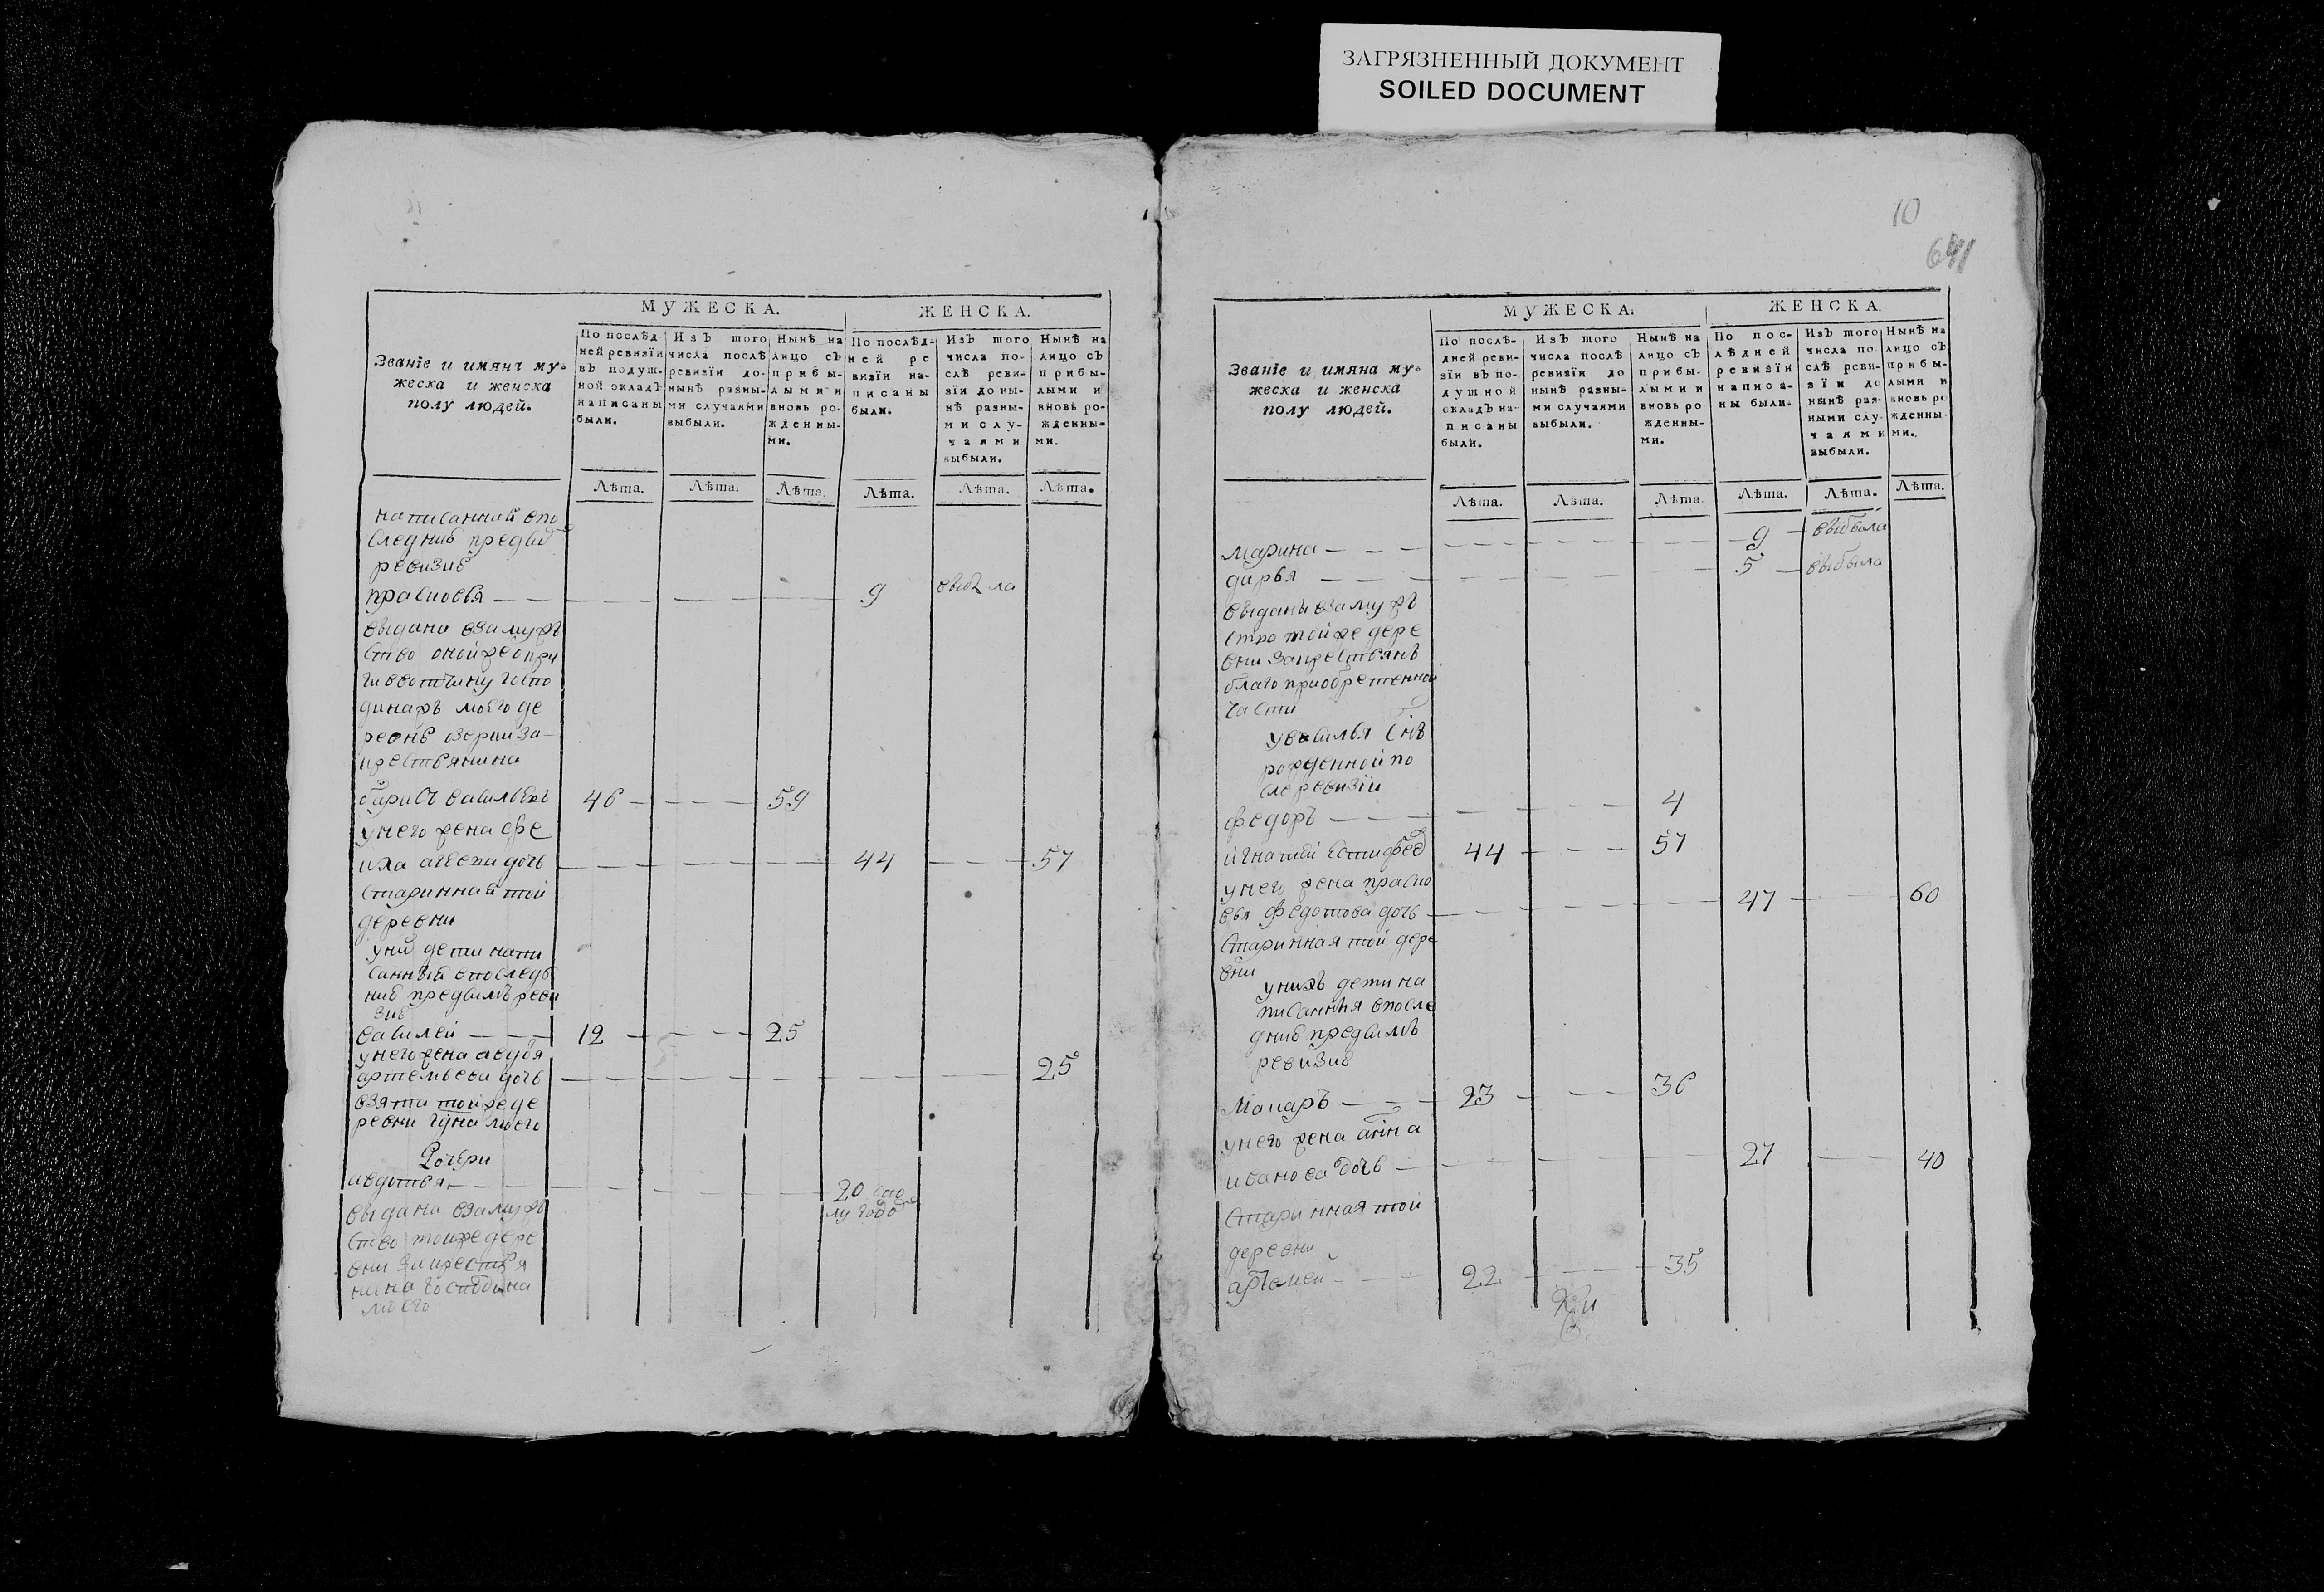 ЗАГРЯЗНЕННЫЙ ДОКУМЕНТ
SOILED DOCUMENT
Званїе и имянч му-
жеска и женска
полу людей.
МУЖЕСКА.
По послѣд
ней ревизїи
въ подуш-
ной окладъ
написаны
были.
Изъ того
числа послѣ
ревизїи до-
нынѣ разны-
ми случаями
выбыли.
Нынѣ на
лицо съ
прибы-
лыми и
вновь ро-
жденны-
ми.
ЖЕНСКА.
По послѣд-
ней ре
визїи на-
писаны
были.
Изъ того
числа по-
слѣ реви-
зїи доны-
нѣ разны-
ми слу-
чаями
выбыли.
Нынѣ на
лицо съ
прибы-
лыми и
вновь ро-
жденны-
ми.
Лѣта. Лѣта. Лѣта. Лѣта. Лѣта. Лѣта.
написанной впо
следнѣ предѣид
ревизиѣ
прасковья — — 9 выбыла
выдана взамуж
ство
динаръ моего де
ревнѣ
крестьянина
46 — — — 59
у него жена
дочь — — 44 — — 57
старинная той
деревни
у них дети напи
санныи впоследъ
ниѣ предъидъ реви
зиѣ
василей — — 12 — — — 25
у него жена авдотя
артемьева дочь — — 25
взята тойже де
ревни гдна моего
Дочери
авдотья — — 20 спо
лугодо
выдана взамуж
ство тойже дере
вни за крестья
нина господина
моего
10
641
Званїе и имяна му-
жеска и женска
полу людей.
МУЖЕСКА.
По послѣ-
дней реви-
зїи въ по-
душной
окладъ на-
писаны
были.
Изъ того
числа послѣ
ревизїи до
нынѣ разны-
ми случаями
выбыли.
Нынѣ на
лицо съ
прибы-
лыми и
вновь ро
жденны-
ми.
ЖЕНСКА.
По пос-
лѣдней
ревизїи
написа-
ны были.
Изъ того
числа по
слѣ реви-
зїи до
нынѣ раз-
ными слу-
чаями
выбыли.
Нынѣ на
лицо съ
прибы-
лыми и
вновь ро
жденны-
ми.
Лѣта. Лѣта. Лѣта. Лѣта. Лѣта. Лѣта.
марина — — — 9 — выбыла
дарья — — — 5 — выбыла
выданы взамуж
ство тойже дере
вни за крестьянъ
благоприобретенной
части
у василья снъ
рожденной по
сле ревизїи
федоръ — — — 4
игнатей 44 — — — 57
у него жена праско
вья федотова дочь — — 47 — — 60
старинная той дере
вни
у нихъ дети на
писанныя впосле
дниѣ предъидъ
ревизиѣ
макаръ — — — 23 — — — 36
у него жена анна
иванова дочь — — 27 — — 40
старинная той
деревни
артемей — — 22 — — — 35